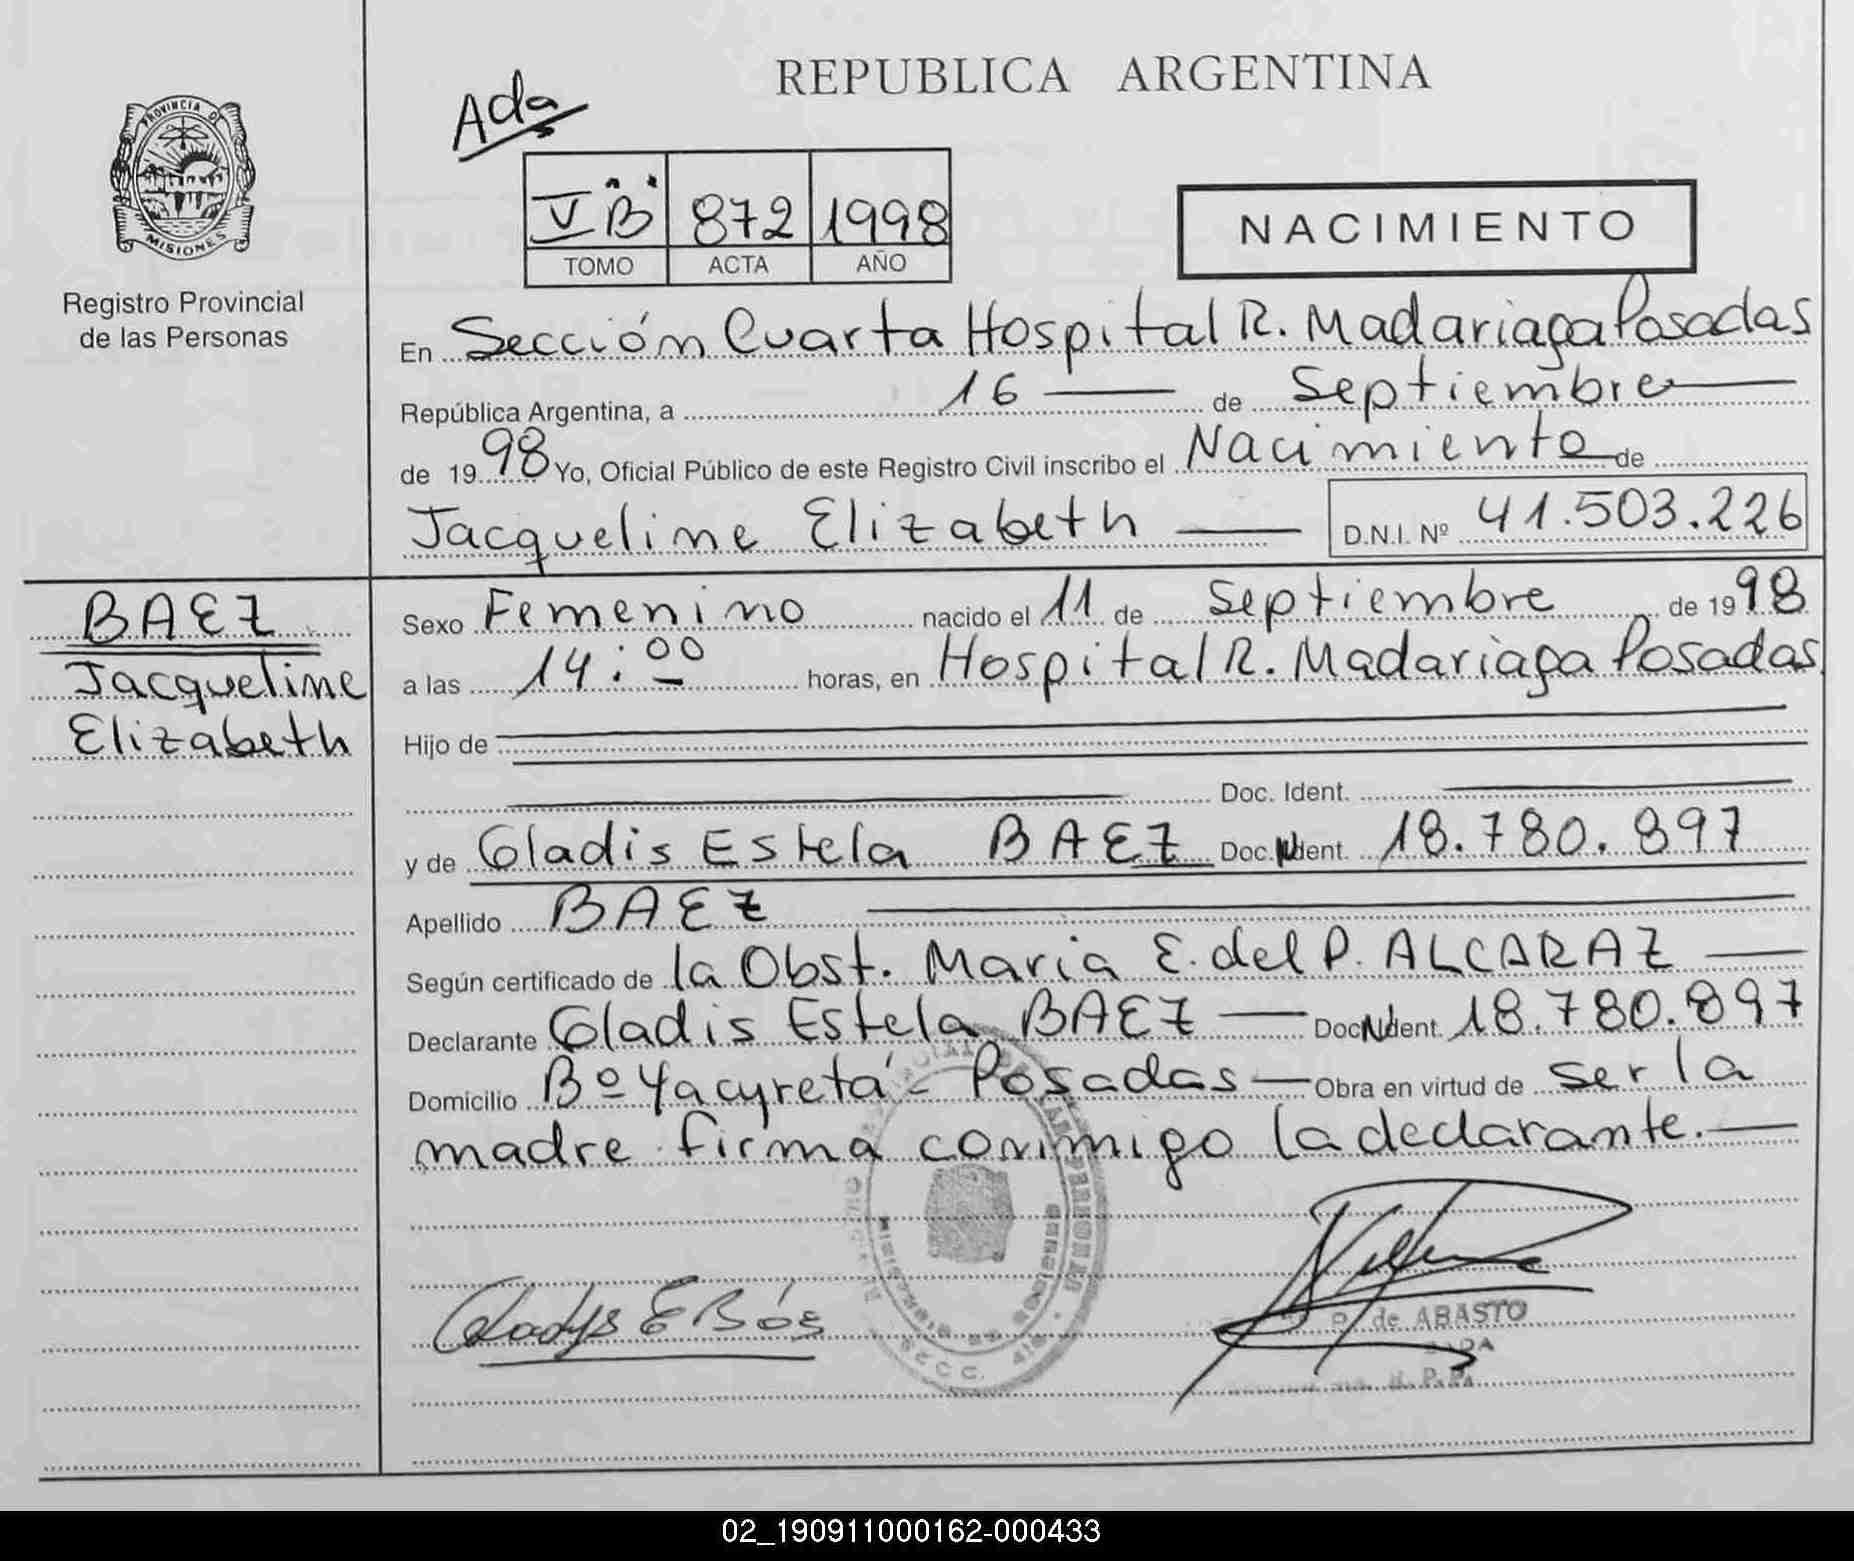 REPUBLICA ARGENTINA
Ada
PROVINCIA DE
MISIONES
Registro Provincial
de las Personas
V B 872 1998
TOMO ACTA AÑO
NACIMIENTO
En Sección Cuarta Hospital R. Madariaga Posadas
República Argentina, a 16 de Septiembre
de 1998 Yo, Oficial Público de este Registro Civil inscribo el Nacimiento de
Jacqueline Elizabeth D.N.I. Nº 41.503.226
BAEZ
Jacqueline
Elizabeth
Sexo Femenino nacido el 11 de Septiembre de 1998
a las 14:00 horas, en Hospital R. Madariaga Posadas
Hijo de
Doc. Ident.
y de Gladis Estela BAEZ Doc. Ident. 18.780.897
Apellido BAEZ
Según certificado de la Obst. Maria E. del P. ALCARAZ
Declarante Gladis Estela BAEZ Doc. Ident. 18.780.897
Domicilio Bº Yacyretá - Posadas Obra en virtud de ser la
madre firma conmigo la declarante.
Gladys E
P. de ABASTO
02_190911000162-000433